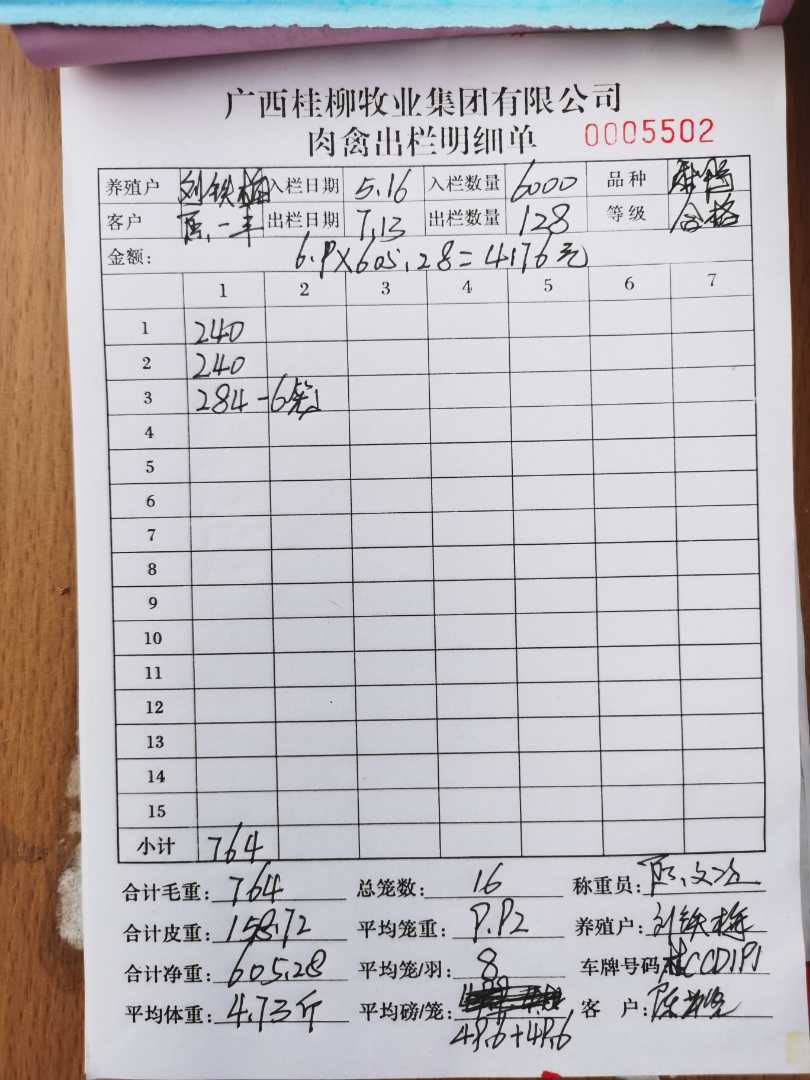 广西桂柳牧业集团有限公司
肉禽出栏明细单 0005502
养殖户 刘铁梅 入栏日期 5.16 入栏数量 6000 品种
客户 出栏日期 7.13 出栏数量 128 等级 合格
金额: 6.9X605.28=4176元
1 2 3 4 5 6 7
1 240
2 240
3 284-6笼
4
5
6
7
8
9
10
11
12
13
14
15
小计 764
合计毛重: 764 总笼数: 16 称重员:
合计皮重: 158.72 平均笼重: 9.92 养殖户: 刘铁梅
合计净重: 605.28 平均笼/羽: 8 车牌号码 桂CCD191
平均体重: 4.73斤 平均磅/笼: 客 户:
49.6+49.6